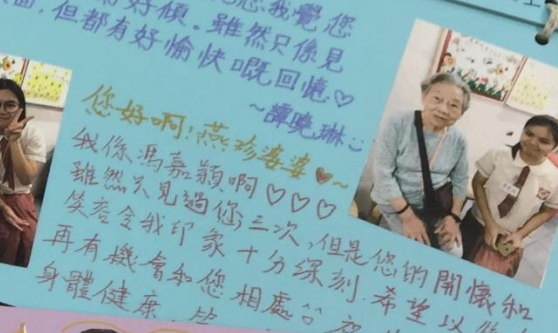 您我覺您
好傾。雖然只係見
面,但都有好愉快嘅回憶♡
~譚曉琳
您好啊!燕珍婆婆♥~
我係馮嘉穎啊♡♡♡
雖然只見過您三次,但是您的開懷和
笑容令我印象十分深刻.希望以
再有機會和您相處
身體健康